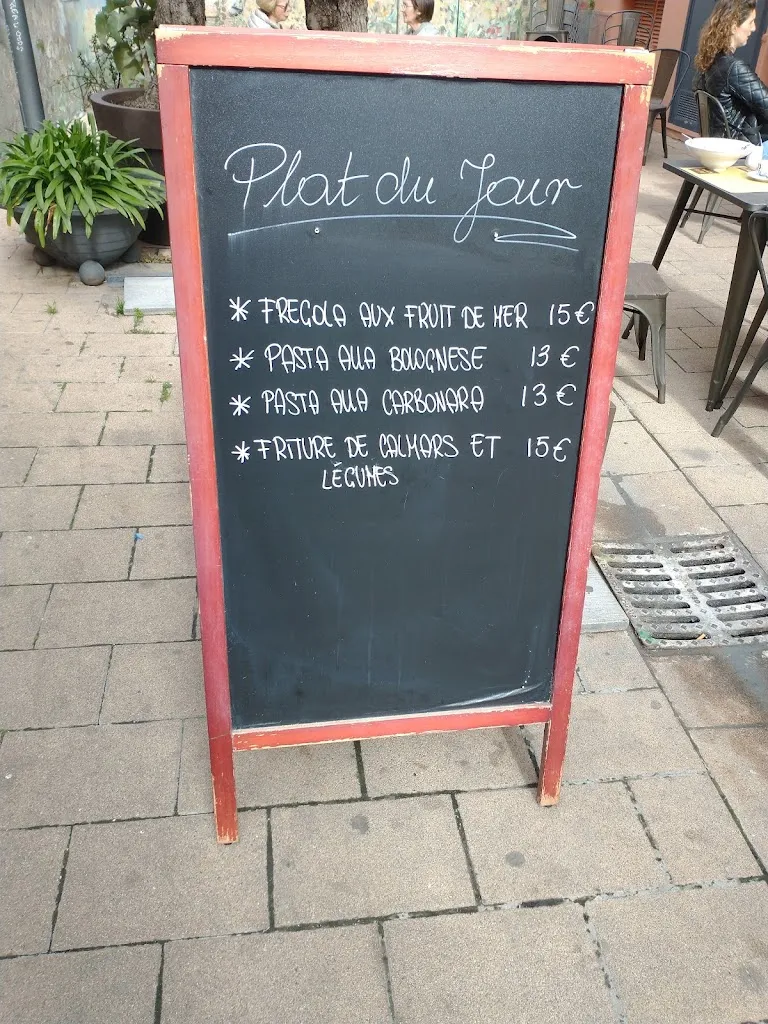 Plat du Jour
* FREGOLA AUX FRUIT DE MER 15€
* PASTA ALLA BOLOGNESE 13 €
* PASTA ALLA CARBONARA 13 €
* FRITURE DE CALMARS ET 15€
LÉGUMES